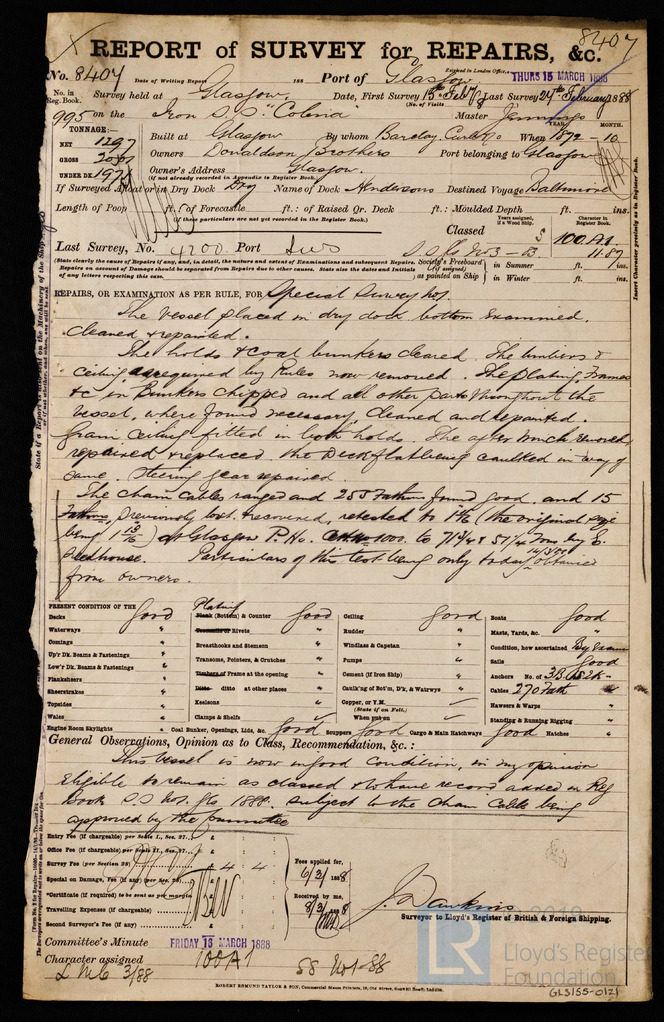 8407
REPORT of SURVEY for REPAIRS, &c.
No. 8407 Date of Writing Report 188 Port of Glasgow Received in London Office, THURS 15 MARCH 1888
No. in Reg. Book. Survey held at Glasgow Date, First Survey 15th Feby Last Survey 24th February 1888
(No. of Visits
995 on the Iron S.S. "Colina" Master Jennings
TONNAGE: YEAR. MONTH.
NET 1297 Built at Glasgow By whom Barclay Curle & Co When 1872 - 10
GROSS Owners Donaldson Brothers Port belonging to Glasgow
UNDER DK. Owner's Address Glasgow.
(if not already recorded in Appendix to Register Book.)
If Surveyed Afloat or in Dry Dock Dry Name of Dock Andersons Destined Voyage Baltimore
Length of Poop ft.: of Forecastle ft.: of Raised Qr. Deck ft.: Moulded Depth ft. ins.
(if these particulars are not yet recorded in the Register Book.)
Classed Years assigned, if a Wood Ship. Character in Register Book.
100A1
Last Survey, No. 4200 Port 11.87
(State clearly the cause of Repairs, if any, and, in detail, the nature and extent of Examinations and subsequent Repairs.
Repairs on account of Damage should be separated from Repairs due to other causes. State also the dates and Initials
of any letters respecting this case.)
Society's Freeboard (if assigned) as painted on Ship in Summer ft. ins.
in Winter ft. ins.
REPAIRS, OR EXAMINATION AS PER RULE, FOR Special Survey No 1.
The vessel placed in dry dock bottom examined.
cleaned & repainted.
The holds & coal bunkers cleared. The limbers &
ceiling as required by Rules now removed. The plating, Frames
&c in Bunkers chipped and all other parts throughout the
vessel, where found necessary cleaned and repainted.
Grain Ceiling fitted in both holds. The after winch removed,
repaired & replaced. the Deck flat being caulked in way of
same. Steering gear repaired.
The chain cables ranged and 255 Fathms found good. and 15
Fathms, previously lost & recovered, retested to (the original size
being 1 13/16) at Glasgow P.Ho.
Particulars of this test being only today obtained
from owners.
PRESENT CONDITION OF THE
Decks Good
Waterways "
Comings "
Up'r Dk. Beams & Fastenings "
Low'r Dk. Beams & Fastenings "
Planksheers "
Sheerstrakes "
Topsides "
Wales "
Engine Room Skylights "
Plating
Plank (Bottom) & Counter Good
Treenails or Rivets "
Breasthooks and Stemson "
Transoms, Pointers, & Crutches "
Timbers or Frames at the opening "
Ditto ditto at other places "
Keelsons "
Clamps & Shelfs "
Coal Bunker, Openings, Lids, &c. Good
Ceiling Good
Rudder "
Windlass & Capstan "
Pumps "
Cement (if Iron Ship) "
Caulk'ng of Bot'm, D'k, & Watrwys "
Copper, or Y.M.
(State if on Felt.)
When put on
Scuppers Good Cargo & Main Hatchways Good Hatches "
Boats Good
Masts, Yards, &c. "
Condition, how ascertained By Exam
Sails Good
Anchors No. of 3B 1S 2K
Cables 270 Fath "
Hawsers & Warps "
Standing & Running Rigging "
General Observations, Opinion as to Class, Recommendation, &c. :
This vessel is now in good condition, in my opinion
Eligible to remain as classed & to have record added in Reg
Book S.S No 1. Gls 1888. subject to the chain Cable being
approved by the committee
Entry Fee (if chargeable) per Scale I., Sec. 27. £
Office Fee (if chargeable) per Scale II., Sec. 27. £
Survey Fee (per Section 28) £ 4 : 4 :
Special on Damage, Fee (if any) (per Sec. 28) £
*Certificate (if required) to be sent as per margin
Travelling Expenses (if chargeable) £
Second Surveyor's Fee (if any) £
Fees applied for, 6/3/1888
Received by me, 8/3/1888
J. Dawkins
Surveyor to Lloyd's Register of British & Foreign Shipping.
Committee's Minute FRIDAY 16 MARCH 1888
Character assigned 100A1
LMC 3/88
ROBERT EDMUND TAYLOR & SON, Commercial Steam Printers, 19, Old Street, Goswell Road, London.
LR
Lloyd's Register
Foundation
GLS155-0121